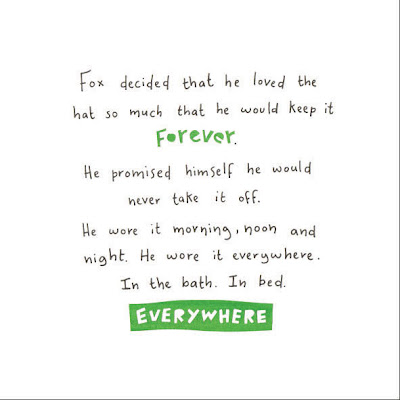 Fox decided that he loved the
hat so much that he would keep it
Forever.
He promised himself he would
never take it off.
He wore it morning, noon and
night. He wore it everywhere.
In the bath. In bed.
EVERYWHERE